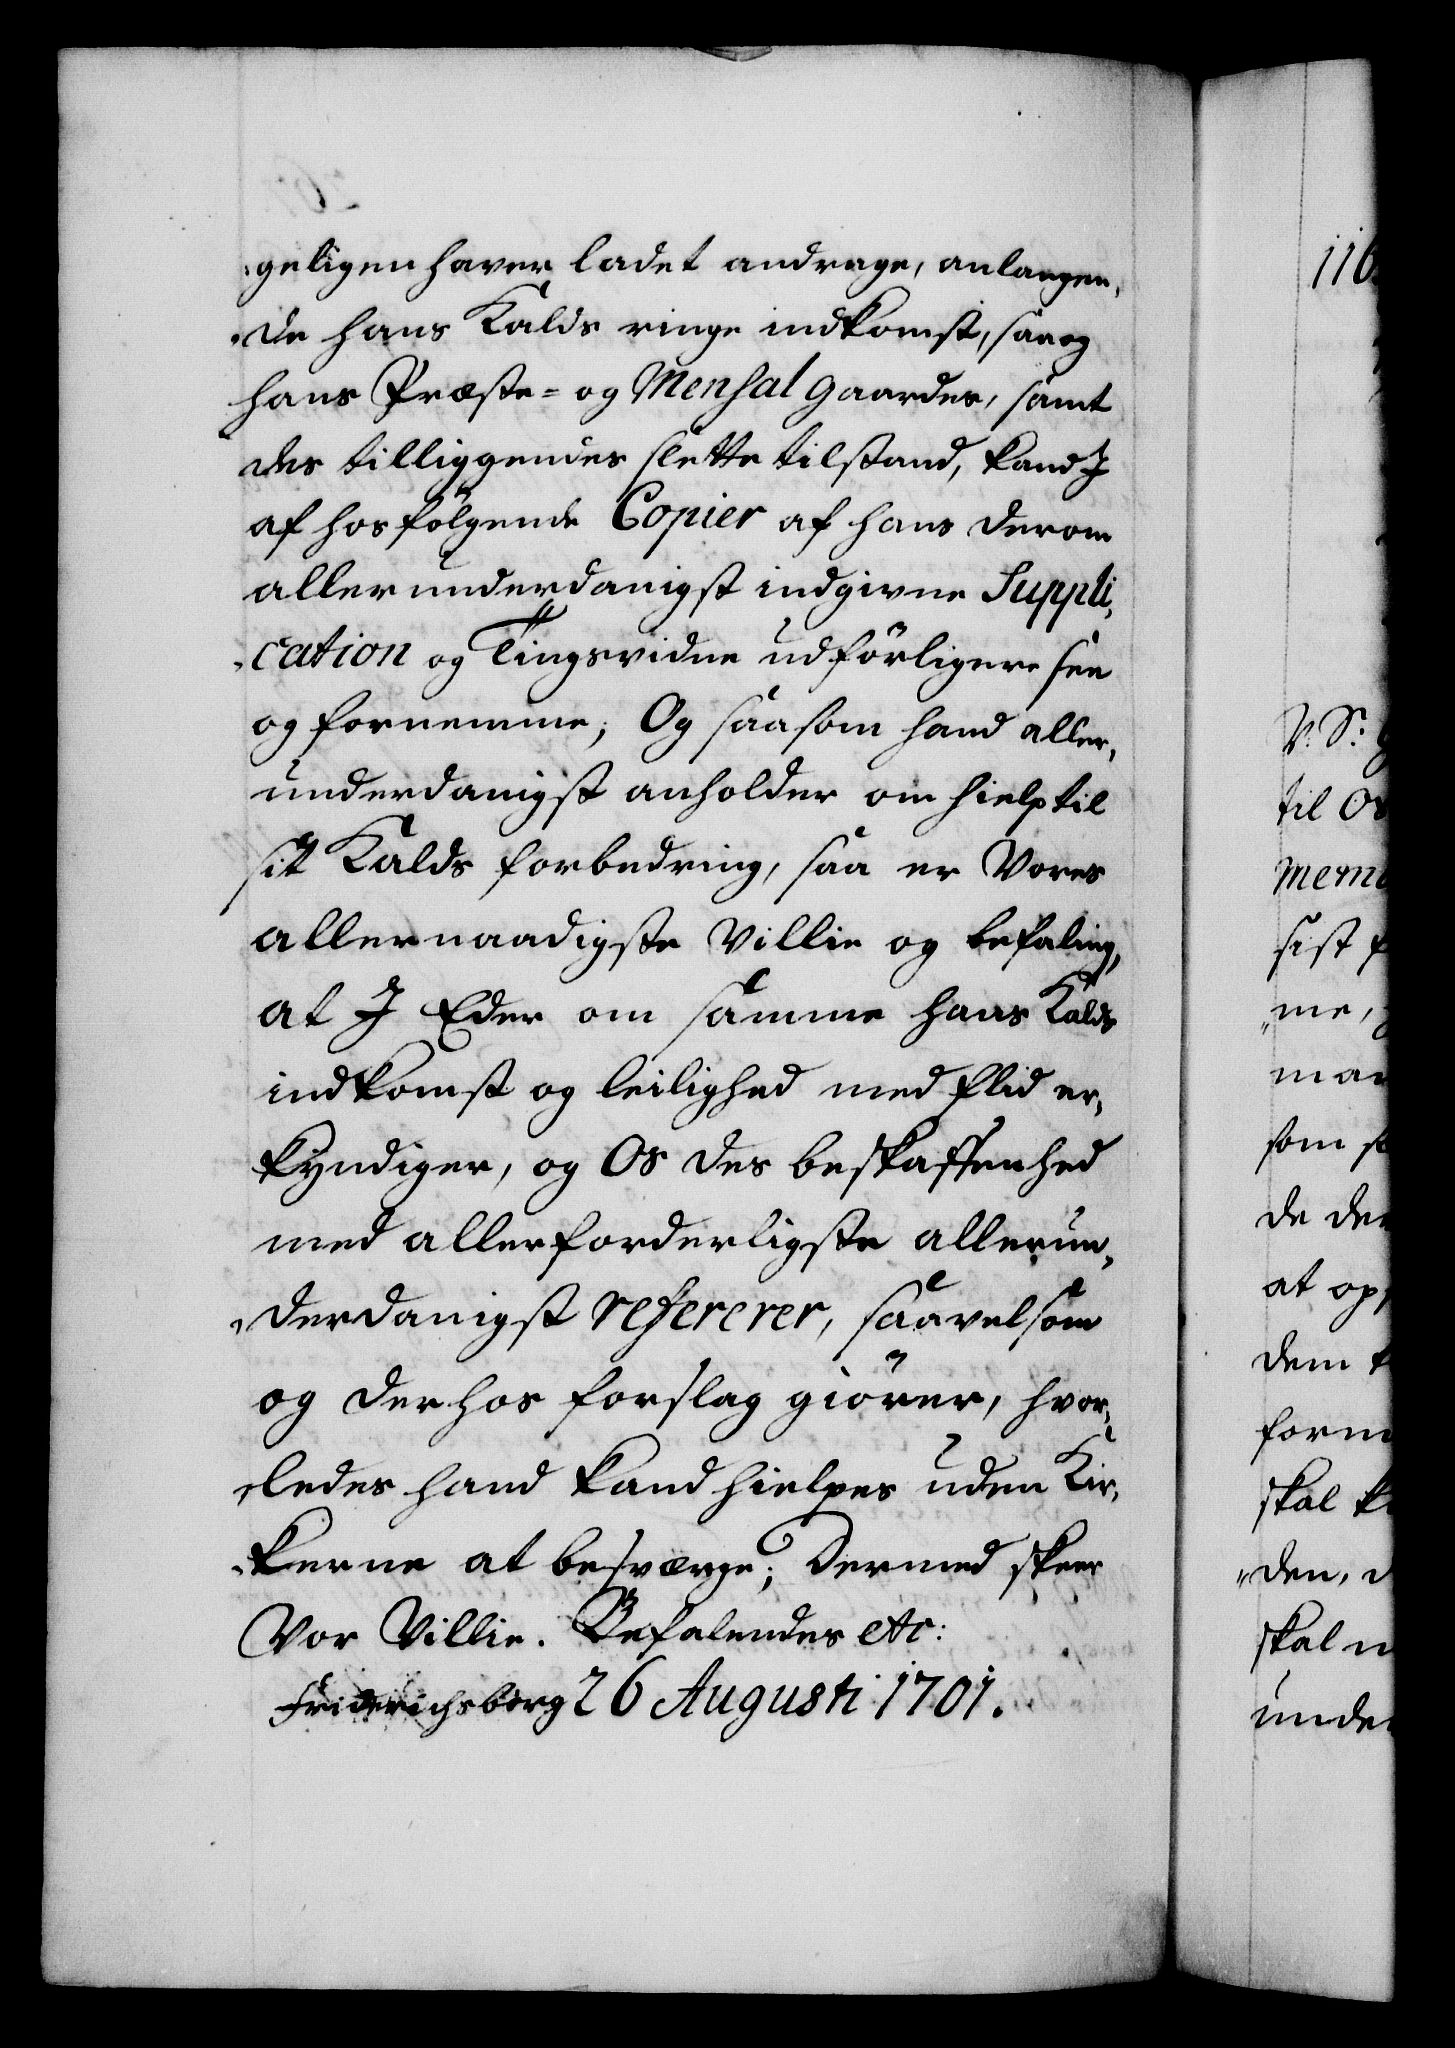 geligen haver ladet andrage, anlangen,
de hans Kalds ringe indkomst, saa og
hans Præste- og Mensal gaardes, samt
des tilliggendes slette tilstand, kand I
af hosfölgende Copier af hans derom
allerunderdanigst indgivne Suppli,
cation og Tingsvidne udförligere see
og fornemme; Og saasom hand aller,
underdanigst anholder om hielp til
sit Kalds forbedring, saa er Vores
allernaadigste Villie og befaling,
at I Eder om samme hans Kalds
indkomst og leilighed med flid er,
kyndiger, og Os des beskaffenhed
med allerforderligste allerun,
derdanigst refererer, saavelsom
og derhos forslag giörer, hvor,
ledes hand kand hielpes uden Kir,
kerne at besværge; Dermed skeer
Vor Villie. Befalendes etc:
Friderichsborg 26 Augusti 1701.
116.
V. S:
til Os
mem
sist f
me,
man
som s
de de
at op
dem t
form
skal k
den, d
skal n
under